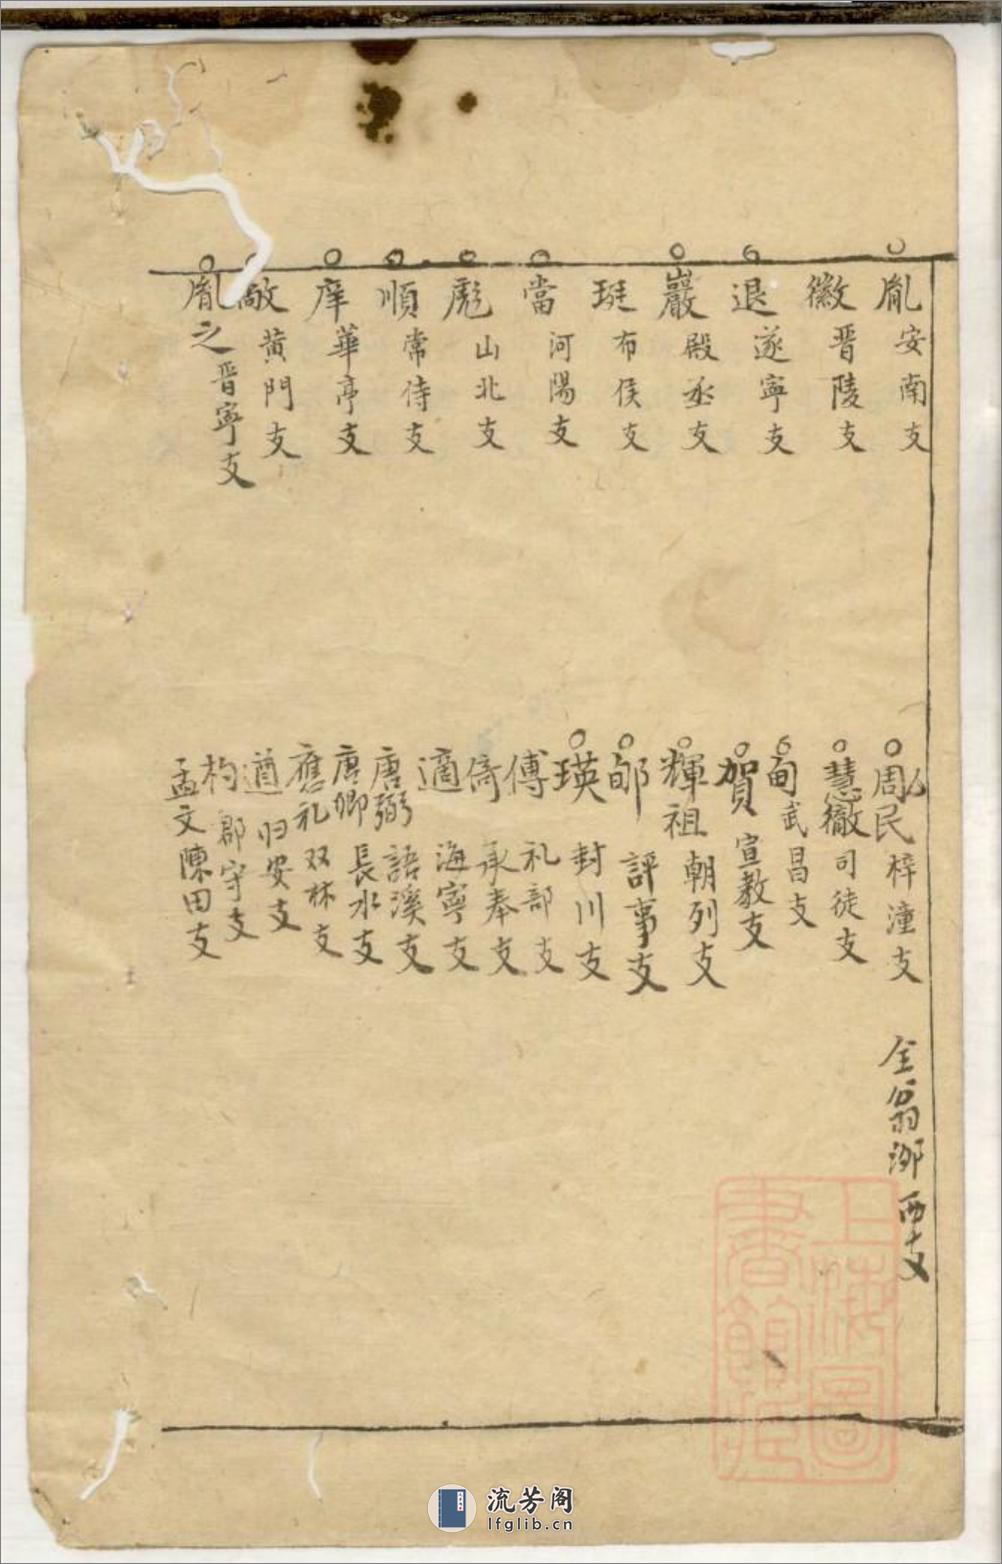 胤安南支
徽晋陵支
退遂寧支
巖殿丞支
珽布侯支
當河陽支
彪山北支
順常侍支
庠華亭支
敵黄門支
胤之晋寧支
周民梓潼支
慧徹司徒支
甸武昌支
賀宣教支
輝祖朝列支
郇評事支
瑛封川支
傅礼部支
奇承奉支
適海寧支
唐弼語溪支
唐卿長水支
應礼双林支
遒归安支
杓郡守支
孟文陳田支
全翁 西支
上海圖書館藏
流芳阁
lfglib.cn